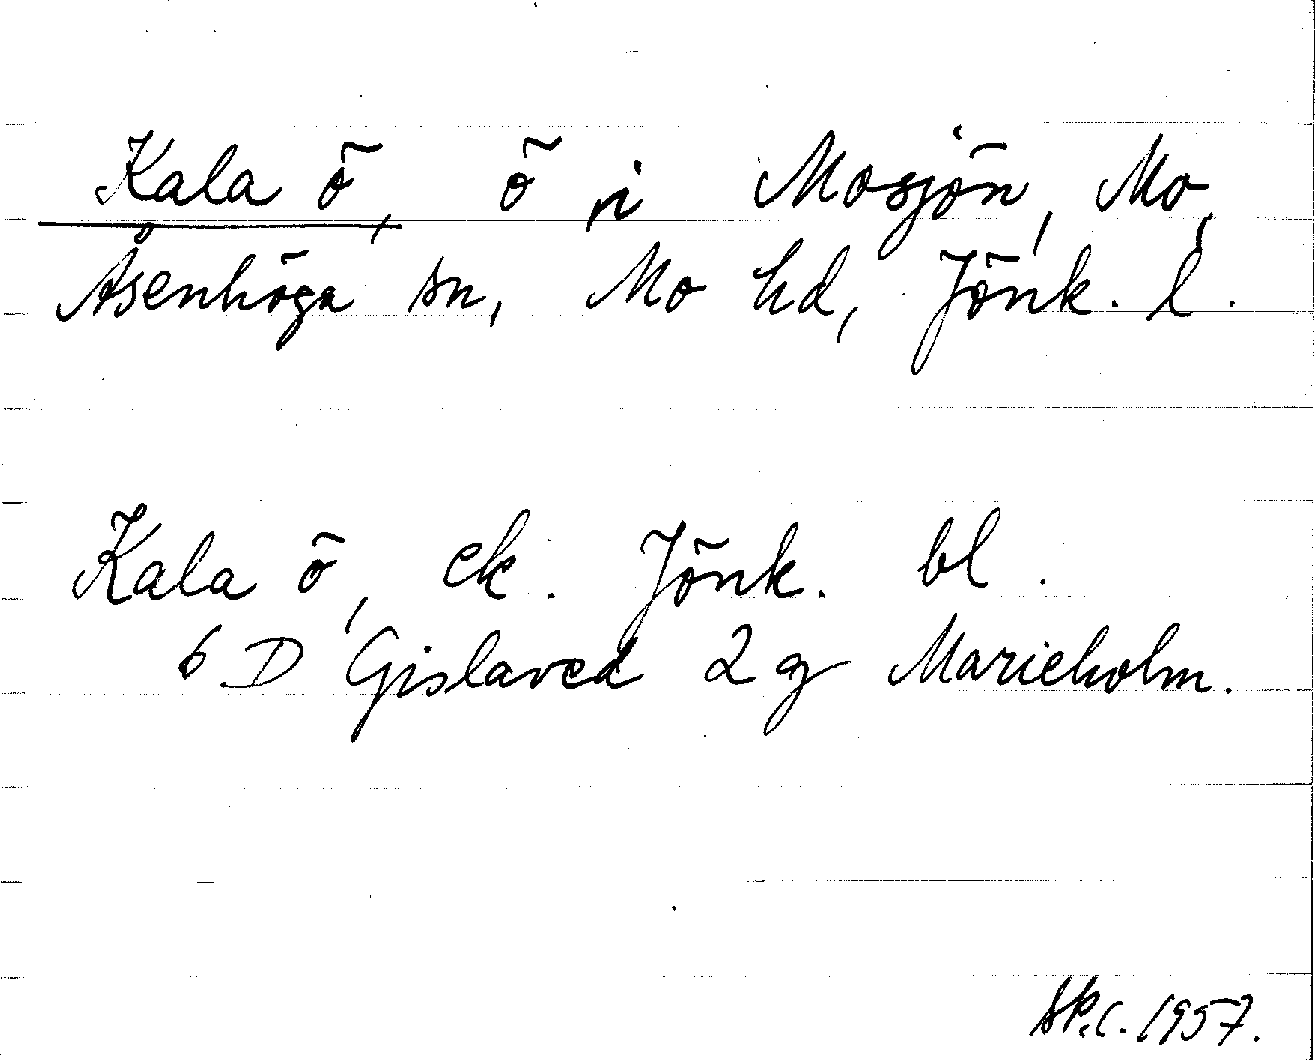 Kala ö, ö i Mosjön, Mo,
Åsenhöga sn, Mo hd, Jönk. l.
Kala ö, ek. Jönk. bl.
6 D Gislaved 2 g Marieholm.
1957.